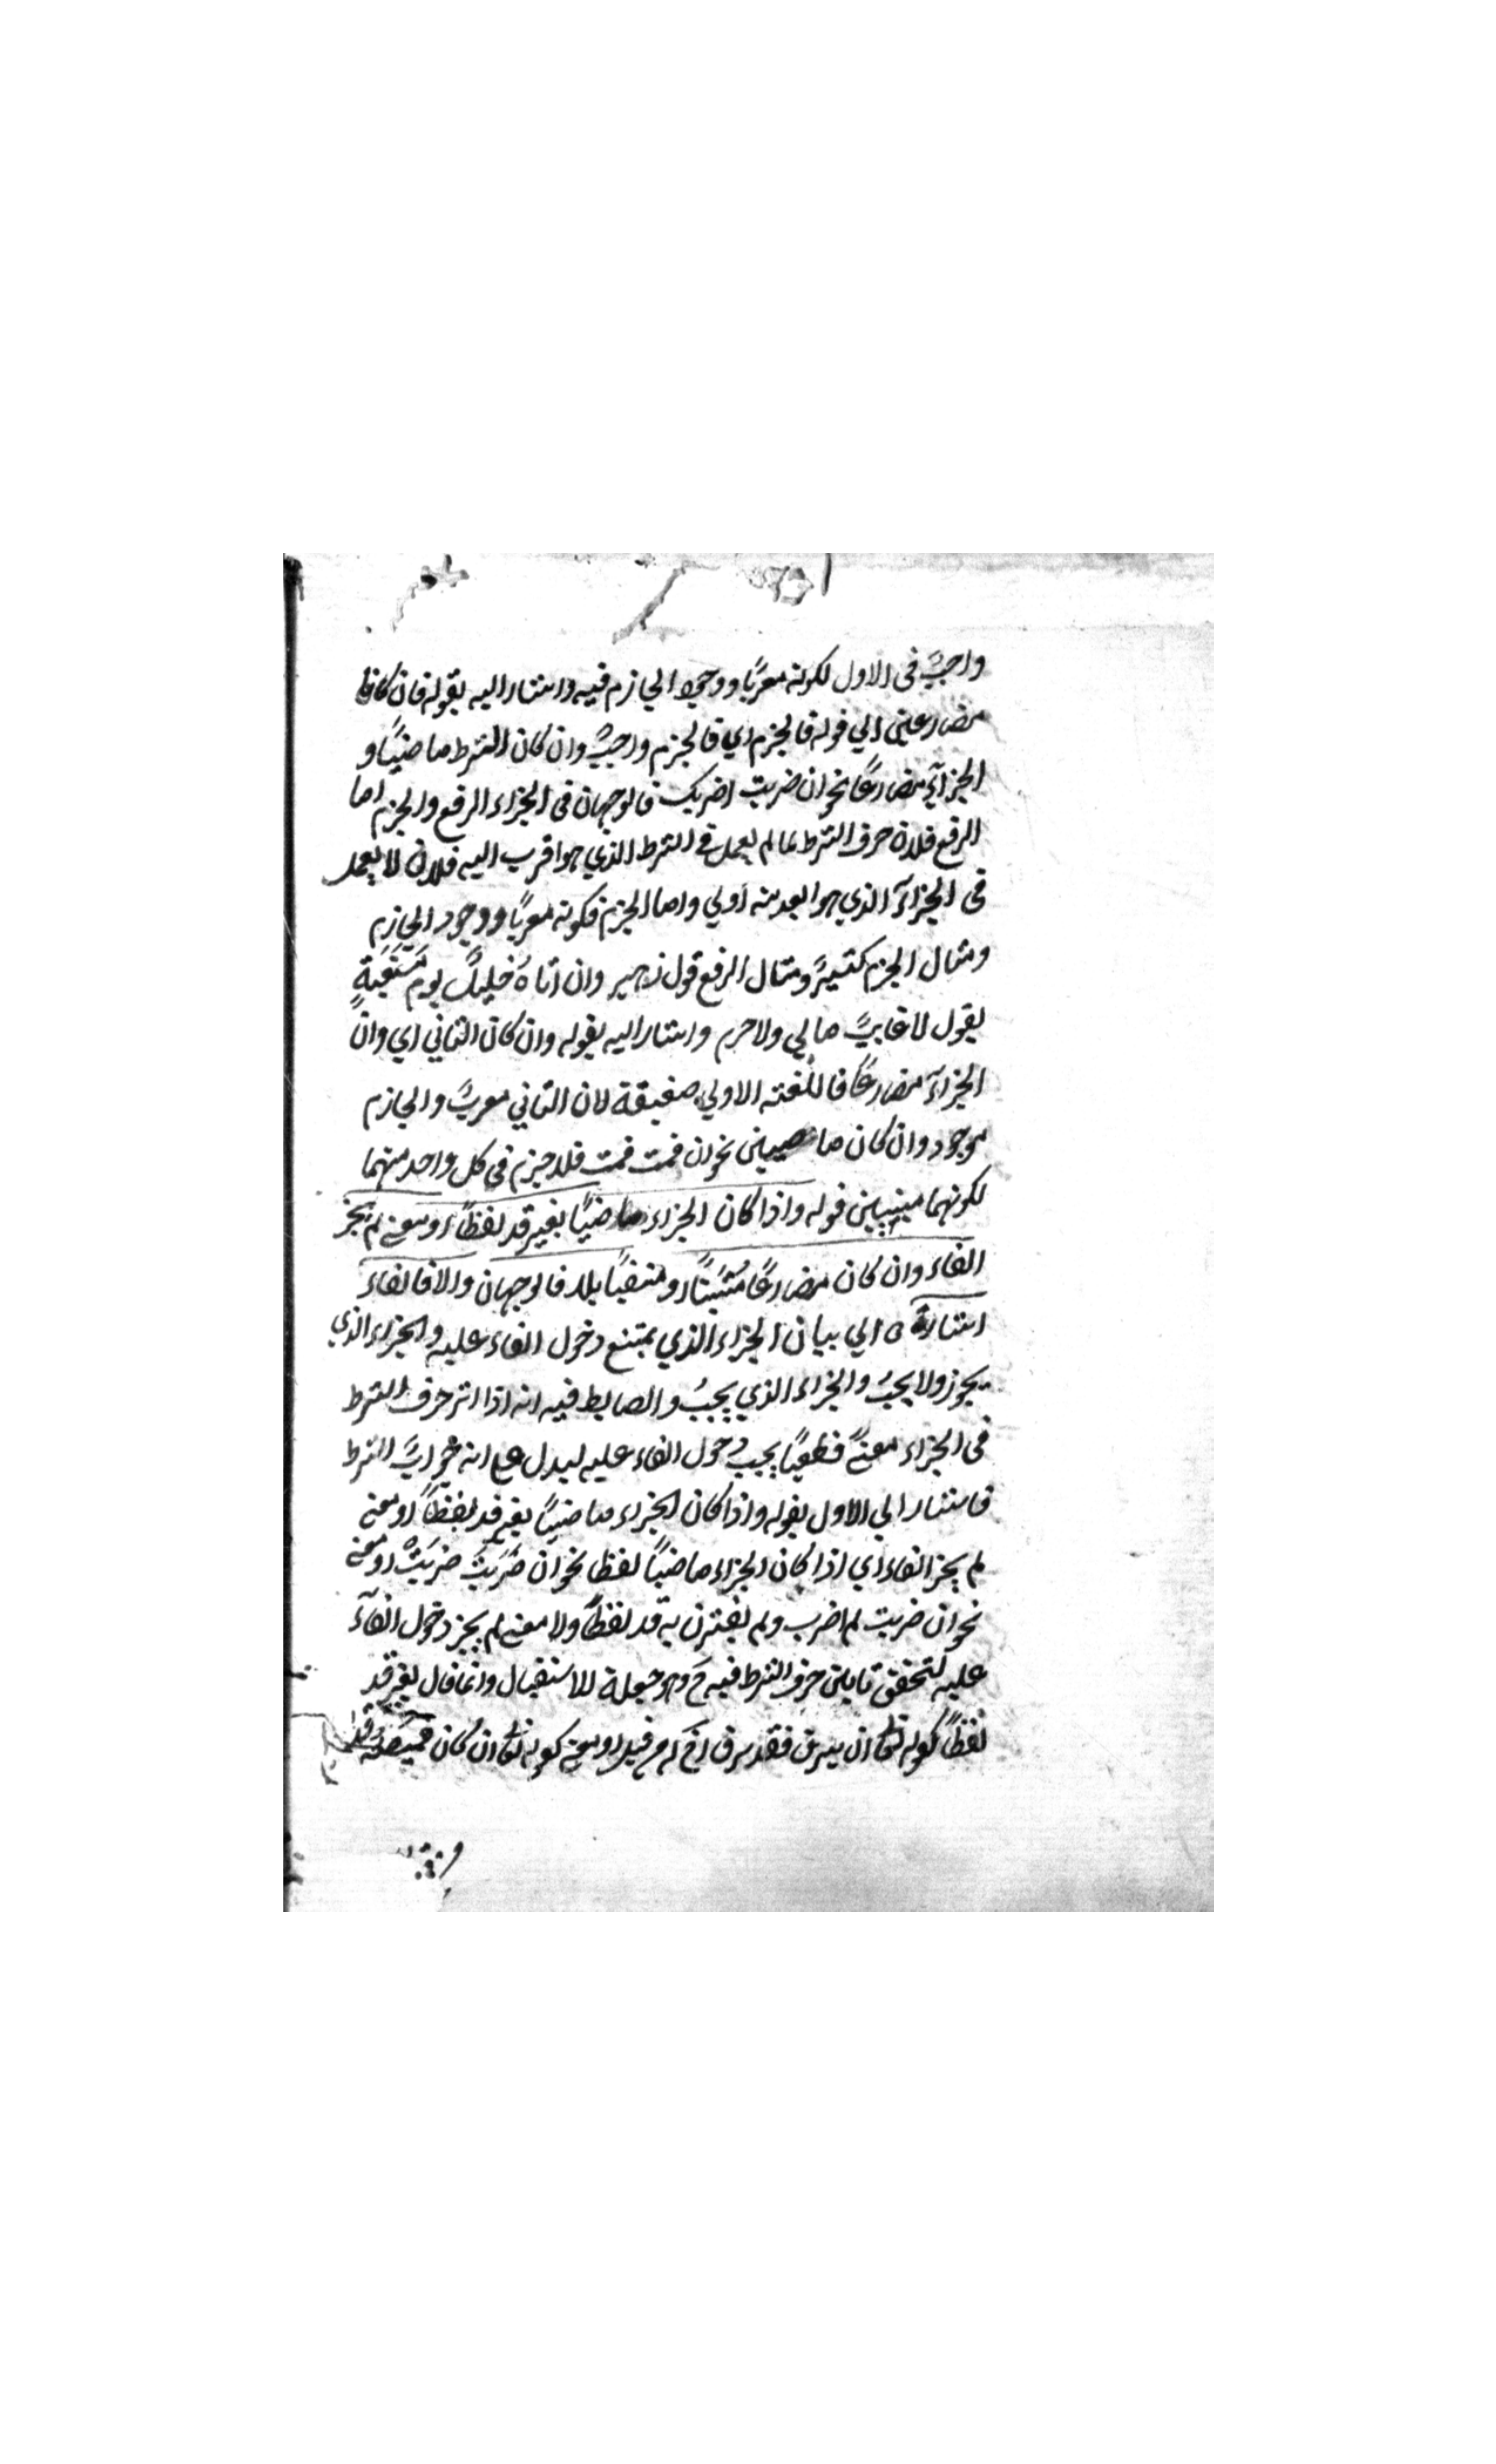 واجبٌ فى الاول لكونه معربًا ووجود الجازم فيه واشار اليه بقوله فان كانا
مضارعين الي قوله فالجزم اي فالجزم واجبٌ وان كان الشرط ماضيًا و
الجزآء مضارعًا نحو ان ضربت اضربك فالوجهان فى الجزاء الرفع والجزم اما
الرفع فلان حرف الشرط لما لم يعمل في الشرط الذي هو اقرب اليه فلان لا يعمل
فى الجزآء الذي هو ابعد منه اولي واما الجزم فلكونه معربًا ووجود الجازم
ومثال الجزم كثيرٌ ومثال الرفع قول زهير وان اتاه خليلٌ يوم مسغبةٍ
يقول لا غايبٌ مالي ولا حرم واشار اليه بقوله وان كان الثاني اي وان
الجزآء مضارعًا فاللغة الاولي ضعيفة لان الثاني معربٌ والجازم
موجود وان كان ماضيين نحو ان قمت قمت فلا جزم في كل واحد منهما
لكونهما مبنيين قوله واذا كان الجزاء ماضيًا بغير قد لفظًا او معنى لم يجز
الفاء وان كان مضارعًا مثبتًا او منفيًا بلا فالوجهان والا فالفاء
اشارة الي بيان الجزاء الذي يمتنع دخول الفاء عليه والجزاء الذي
يجوز ولا يجبُ والجزاء الذي يجبُ والضابط فيه انه اذا اثر حرف الشرط
فى الجزاء معنىً قطعيًا يجب دخول الفاء عليه ليدل على انه جوابُ الشرط
فاشار الي الاول بقوله واذا كان الجزاء ماضيًا بغير قد لفظًا او معنى
لم يجز الفاء اي اذا كان الجزاء ماضيًا لفظا نحو ان ضَرَبَتْ ضربَتْ او معنى
نحو ان ضربت لم اضرب ولم يقترن به قد لفظًا ولا معنى لم يجز دخول الفآء
عليه لتحقق تاثير حرف الشرط فيه ح وهو جعله للاستقبال وانما قال بغير قد
لفظًا كقوله تعالى ان يسرق فقد سرق اخ له من قبل او معنى كقوله تعالى ان كان قميصه قد